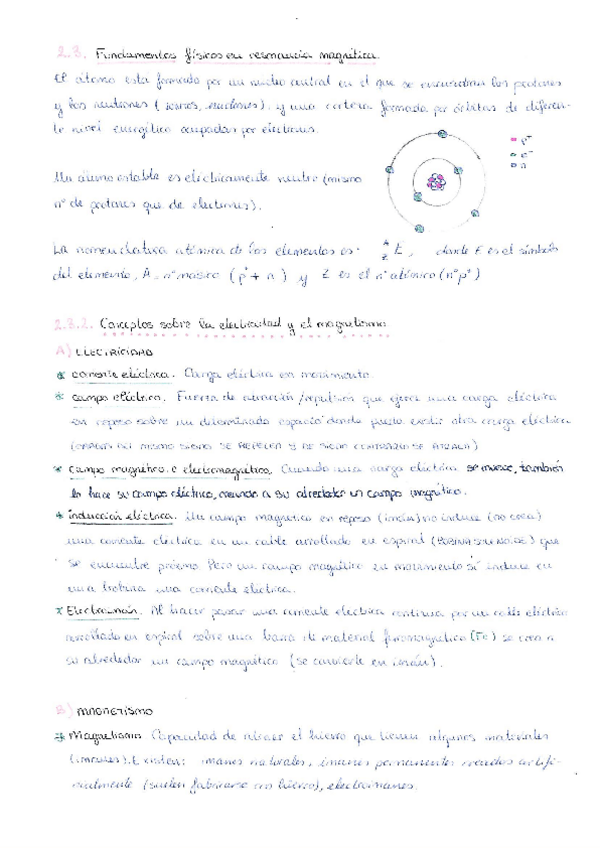 2.3. Fundamentos físicos en resonancia magnética.
El átomo esta formado por un nucleo central en el que se encuentran los protones
y los neutrones ( nucleones), y una corteza formada por órbitas de diferen-
te nivel energético ocupadas por electrones.
p+
e-
n
Un átomo estable es eléctricamente neutro (mismo
nº de protones que de electrones).
La nomenclatura atómica de los elementos es: A Z E, donde E es el símbolo
del elemento, A nº másico (p+ + n) y Z es el nº atómico (nº p+)
2.3.2. Conceptos sobre la electricidad y el magnetismo
A) ELECTRICIDAD
* corriente eléctrica. Carga eléctrica en movimiento.
* campo eléctrico. Fuerza de atracción/repulsion que ejerce una carga eléctrica
en reposo sobre un determinado espacio donde puede existir otra carga eléctrica
(CARGAS DEL MISMO SIGNO SE REPELEN Y DE SIGNO CONTRARIO SE ATRAEN)
* campo magnético o electromagnético. Cuando una carga eléctrica se mueve, también
lo hace su campo eléctrico, creando a su alrededor un campo magnético.
* inducción eléctrica. Un campo magnetico en reposo (imán) no induce (no crea)
una corriente electrica en un cable arrollado en espiral (BOBINA SOLENOIDE) que
se encuentre próximo. Pero un campo magnético en movimiento sí induce en
una bobina una corriente electrica.
* Electroimán. Al hacer pasar una corriente electrica continua por un cable eléctrico
arrollado en espiral sobre una barra de material ferromagnético (Fe) se crea a
su alrededor un campo magnético (se convierte en imán).
B) MAGNETISMO
* Magnetismo Capacidad de atraer el hierro que tienen algunos materiales
(imanes). Existen: imanes naturales, imanes permanentes creados artifi-
cialmente (suelen fabricarse con hierro), electroimanes.